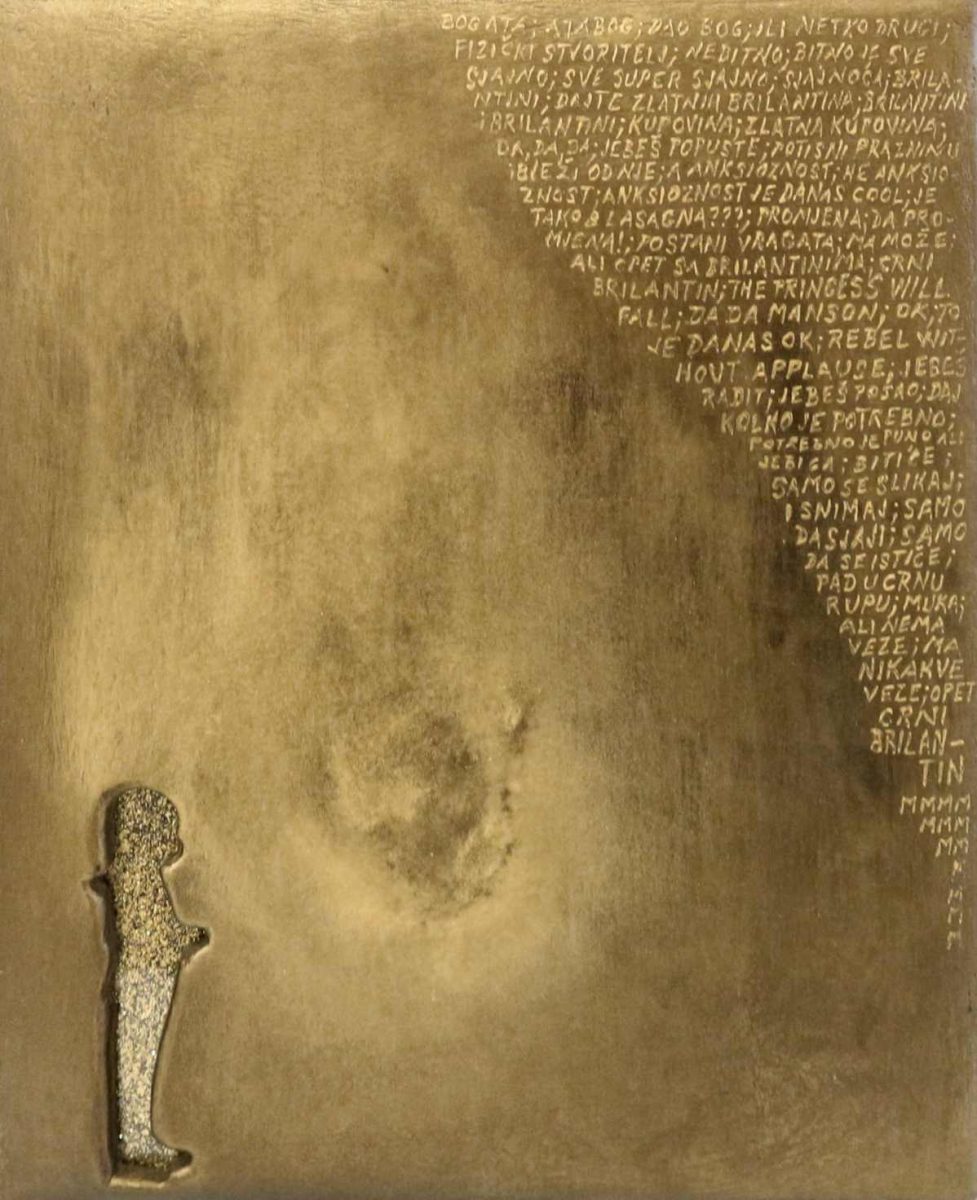 BOGATA; ATABOG; DAO BOG; ILI NETKO DRUGI;
FIZIČKI STVORITELJ; NEBITNO; BITNO JE SVE
SJAJNO; SVE SUPER SJAJNO; SJAJNOĆA; BRILA-
NTINI; DAJTE ZLATNIH BRILANTINA; BRILANTINI
; BRILANTINI; KUPOVINA; ZLATNA KUPOVINA;
DA, DA, DA; JEBEŠ POPUSTE; POTISNI PRAZNINU
; BJEŽI OD NJE; A ANKSIOZNOST; HE ANKSIO
ZNOST; ANKSIOZNOST JE DANAS COOL; JE
TAKO LASAGNA???; PROMJENA; DA PRO-
MJENA!; POSTANI VRAGATA; MA MOŽE;
ALI OPET SA BRILANTINIMA; CRNI
BRILANTIN; THE PRINCESS WILL
FALL; DA DA MANSON; OK; TO
JE DANAS OK; REBEL WIT-
HOUT APPLAUSE; JEBEŠ
RADIT; JEBEŠ POSAO; DAJ
KOLKO JE POTREBNO;
POTREBNO JE PUNO ALI
JEBIGA; BIT ĆE;
SAMO SE SLIKAJ;
I SNIMAJ; SAMO
DA SJAJI; SAMO
DA SE ISTIČE;
PAD U CRNU
RUPU; MUKA;
ALI NEMA
VEZE; MA
NIKAKVE
VEZE; OPET
CRNI
BRILAN-
TIN
MMMM
MMM
MM
M
M
M
M